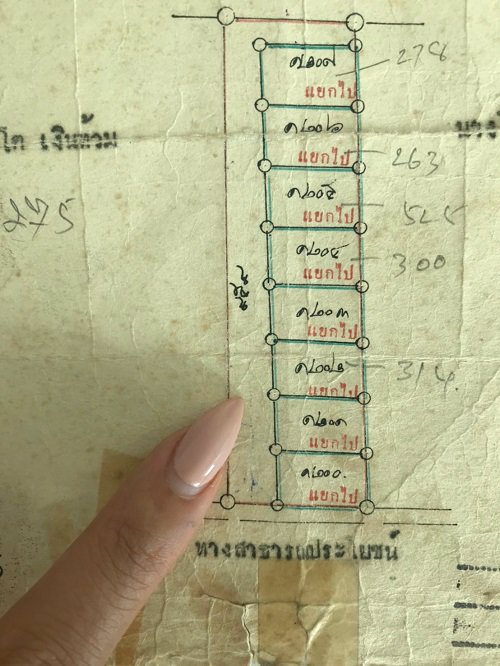 ๑๒๐๗
278
แยกไป
๑๒๐๖
โต เงินท้วม
แยกไป
263
๑๒๐๕
275
แยกไป
525
๑๒๐๔
แยกไป
300
๑๒๐๓
แยกไป
๑๒๐๒
แยกไป
314
๑๒๐๑
แยกไป
๑๒๐๐
แยกไป
ทางสาธารณประโยชน์